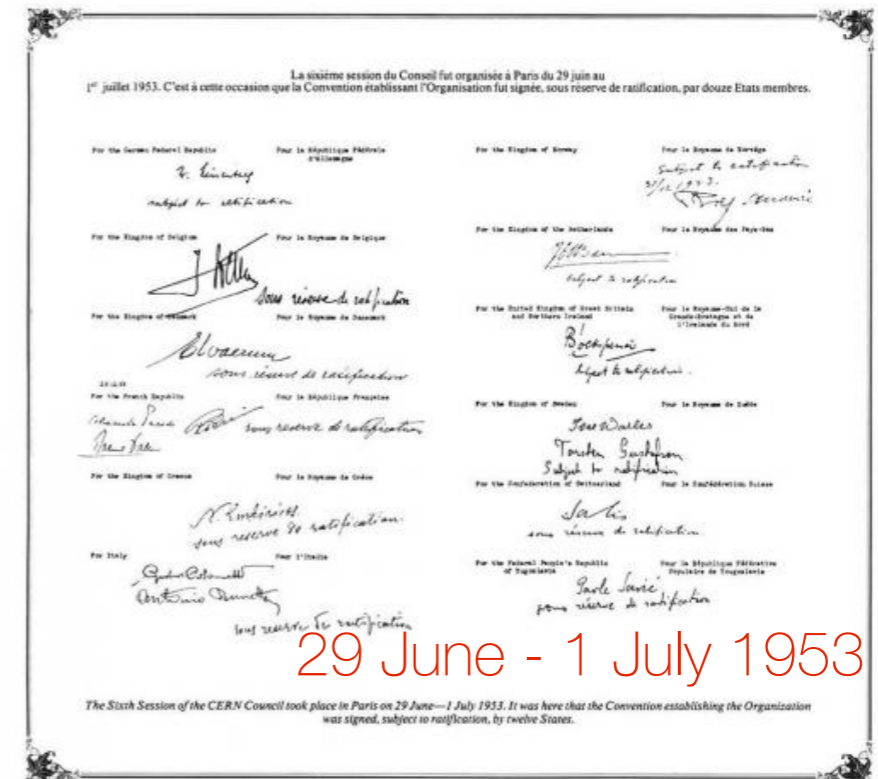 La sixième session du Conseil fut organisée à Paris du 29 juin au
1er juillet 1953. C'est à cette occasion que la Convention établissant l'Organisation fut signée, sous réserve de ratification, par douze Etats membres.
For the German Federal Republic Pour la République Fédérale
d'Allemagne
subject to ratification
For the Kingdom of Belgium Pour le Royaume de Belgique
sous réserve de ratification
For the Kingdom of Denmark Pour le Royaume de Danemark
sous réserve de ratification
For the French Republic Pour la République Française
sous reserve de ratification
For the Kingdom of Greece Pour le Royaume de Grèce
sous reserve de ratification.
For Italy Pour l'Italie
Antonio
sous reserve de ratification
For the Kingdom of Norway Pour le Royaume de Norvège
Subject to ratification
31/12 1953.
For the Kingdom of the Netherlands Pour le Royaume des Pays-Bas
subject to ratification
For the United Kingdom of Great Britain Pour le Royaume-Uni de la
and Northern Ireland Grande-Bretagne et de
l'Irlande du Nord
subject to ratification.
For the Kingdom of Sweden Pour le Royaume de Suède
Torsten Gustafson
Subject to ratification
For the Confederation of Switzerland Pour la Confédération Suisse
sous réserve de ratification.
For the Federal People's Republic Pour la République Fédérative
of Yugoslavia Populaire de Yougoslavie
Pavle Savić
sous réserve de ratification
29 June - 1 July 1953
The Sixth Session of the CERN Council took place in Paris on 29 June—1 July 1953. It was here that the Convention establishing the Organization
was signed, subject to ratification, by twelve States.